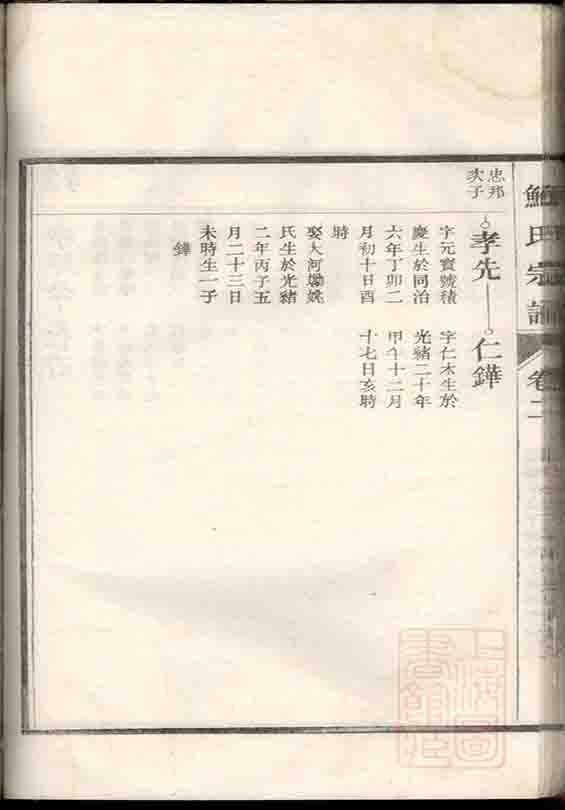 鮑氏宗譜 卷二
忠邦
次子
孝先
字元寶號積
慶生於同治
六年丁卯二
月初十日酉
時
娶大河 姚
氏生於光緒
二年丙子五
月二十三日
未時生一子
鏵
仁鏵
字仁木生於
光緒二十年
甲午十二月
十七日亥時
上海圖
書館藏